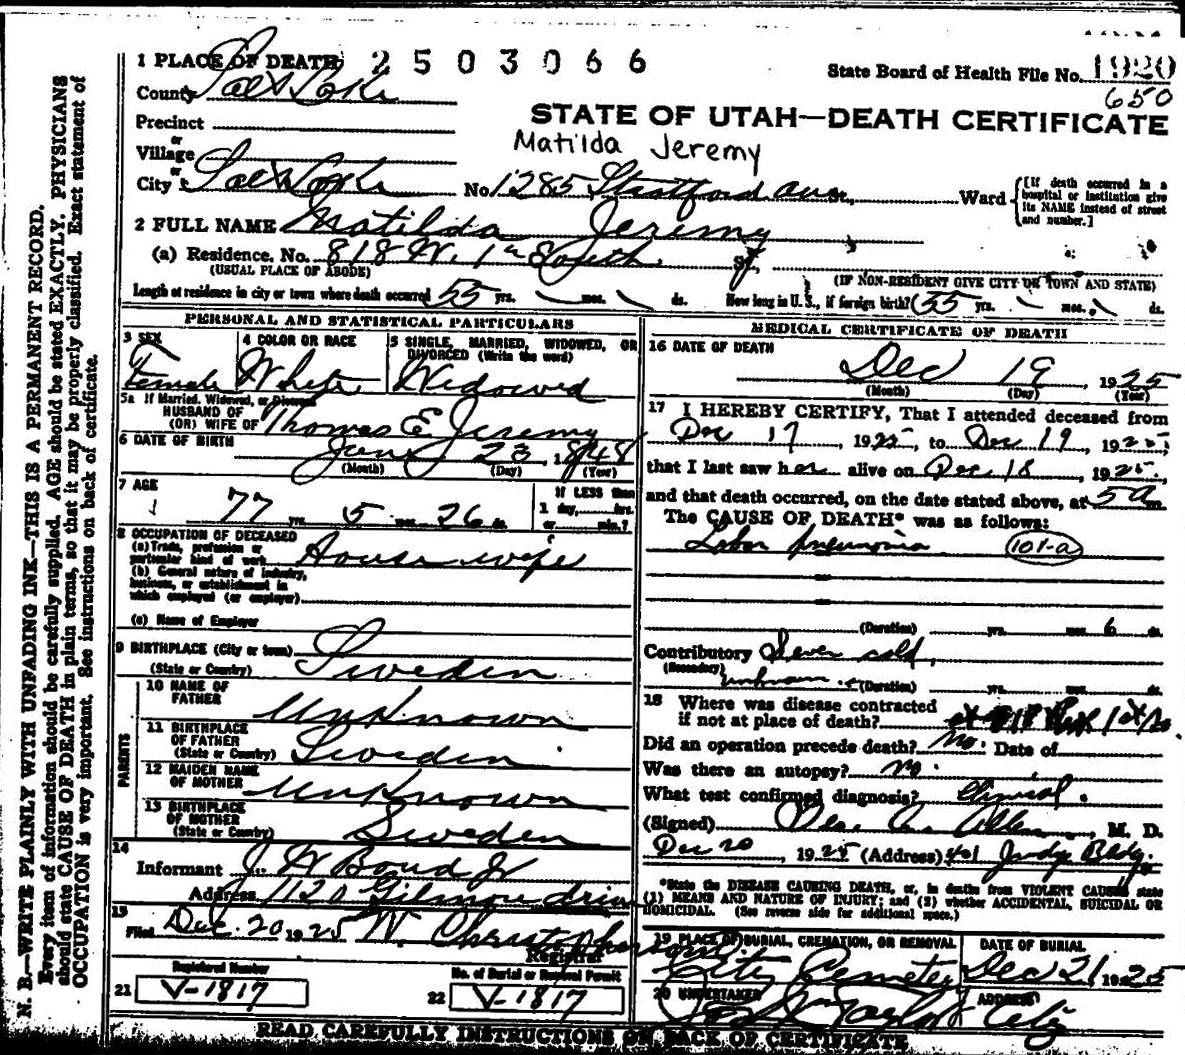 1 PLACE OF DEATH 2503066
State Board of Health File No. 1920
650
County Salt Lake
STATE OF UTAH—DEATH CERTIFICATE
Precinct
or
Village
Matilda Jeremy
or
City Salt Lake No. 1285 Stratford ave., Ward [If death occurred in a hospital or institution give its NAME instead of street and number.]
2 FULL NAME Matilda Jeremy
(a) Residence. No. 818 W. 1st South St.,
(USUAL PLACE OF ABODE) (IF NON-RESIDENT GIVE CITY OR TOWN AND STATE)
Length of residence in city or town where death occurred 55 yrs. mos. ds. How long in U. S., if foreign birth? 55 yrs. mos. ds.
PERSONAL AND STATISTICAL PARTICULARS
3 SEX
Female
4 COLOR OR RACE
White
5 SINGLE, MARRIED, WIDOWED, OR DIVORCED (Write the word)
Widowed
5a If Married, Widowed, or Divorced
HUSBAND OF
(OR) WIFE OF Thomas E. Jeremy
6 DATE OF BIRTH
23, 1848
(Month) (Day) (Year)
7 AGE
77 yrs. 5 mos. 26 ds.
If LESS than
1 day, hrs.
or min.?
8 OCCUPATION OF DECEASED
(a) Trade, profession or
particular kind of work House wife
(b) General nature of industry,
business, or establishment in
which employed (or employer)
(c) Name of Employer
9 BIRTHPLACE (City or town)
(State or Country) Sweden
PARENTS
10 NAME OF
FATHER Unknown
11 BIRTHPLACE
OF FATHER
(State or Country) Sweden
12 MAIDEN NAME
OF MOTHER Unknown
13 BIRTHPLACE
OF MOTHER
(State or Country) Sweden
14
Informant J. W. Boud Jr
Address 1120 Gilmore drive
15
Filed Dec. 20 1925 W. Christopherson
Registrar
Registered Number
21 V-1817
No. of Burial or Removal Permit
22 V-1817
MEDICAL CERTIFICATE OF DEATH
16 DATE OF DEATH
Dec 19, 1925
(Month) (Day) (Year)
17 I HEREBY CERTIFY, That I attended deceased from
Dec 17, 1925, to Dec 19, 1925,
that I last saw her alive on Dec. 18, 1925,
and that death occurred, on the date stated above, at 5 am.
The CAUSE OF DEATH* was as follows:
Lobar pneumonia 101-a
(Duration) yrs. mos. 6 ds.
Contributory cold,
(Secondary) unknown (Duration) yrs. mos. ds.
18 Where was disease contracted
if not at place of death?
Did an operation precede death? no. Date of
Was there an autopsy? no.
What test confirmed diagnosis? Clinical.
(Signed) Allen, M. D.
Dec 20, 1925 (Address) 401 Judge Bldg.
*State the DISEASE CAUSING DEATH, or, in deaths from VIOLENT CAUSES state
(1) MEANS AND NATURE OF INJURY; and (2) whether ACCIDENTAL, SUICIDAL OR
HOMICIDAL. (See reverse side for additional space.)
19 PLACE OF BURIAL, CREMATION, OR REMOVAL
City Cemetery
DATE OF BURIAL
Dec 21 1925
20 UNDERTAKER
Taylor
ADDRESS
City
READ CAREFULLY INSTRUCTIONS ON BACK OF CERTIFICATE
N. B.—WRITE PLAINLY WITH UNFADING INK—THIS IS A PERMANENT RECORD.
Every item of information should be carefully supplied. AGE should be stated EXACTLY. PHYSICIANS
should state CAUSE OF DEATH in plain terms, so that it may be properly classified. Exact statement of
OCCUPATION is very important. See instructions on back of certificate.